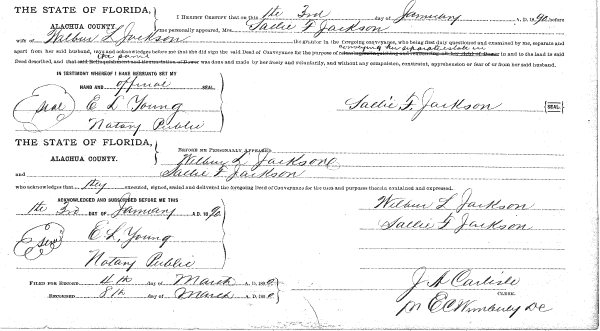 THE STATE OF FLORIDA,
ALACHUA COUNTY.
I HEREBY CERTIFY that on this the 3rd day of January A. D. 1890 before
me personally appeared, Mrs. Sallie F. Jackson
wife of Wilbur L Jackson the grantor in the foregoing conveyance, who being first duly questioned and examined by me, separate and
apart from her said husband, says and acknowledges before me that she did sign the said Deed of Conveyance for the purpose of conveying her separate estate in and to the land in said
Deed described, and that the same was done and made by her freely and voluntarily, and without any compulsion, constraint, apprehension or fear of or from her said husband.
IN TESTIMONY WHEREOF I HAVE HEREUNTO SET MY
HAND AND official SEAL
Seal E L Young
Notary Public
Sallie F. Jackson SEAL
THE STATE OF FLORIDA,
ALACHUA COUNTY.
BEFORE ME PERSONALLY APPEARED
Wilbur L Jackson
and Sallie F Jackson
who acknowledges that they executed, signed, sealed and delivered the foregoing Deed of Conveyance for the uses and purposes therein contained and expressed.
ACKNOWLEDGED AND SUBSCRIBED BEFORE ME THIS
the 3rd DAY OF January A. D. 1890
Seal E. L. Young
Notary Public
Wilbur L Jackson
Sallie F Jackson
FILED FOR RECORD 4th day of March A. D. 1890
RECORDED 8th day of March A. D. 1890
J. A. Carlisle
CLERK.
pr E C Wimberly DC